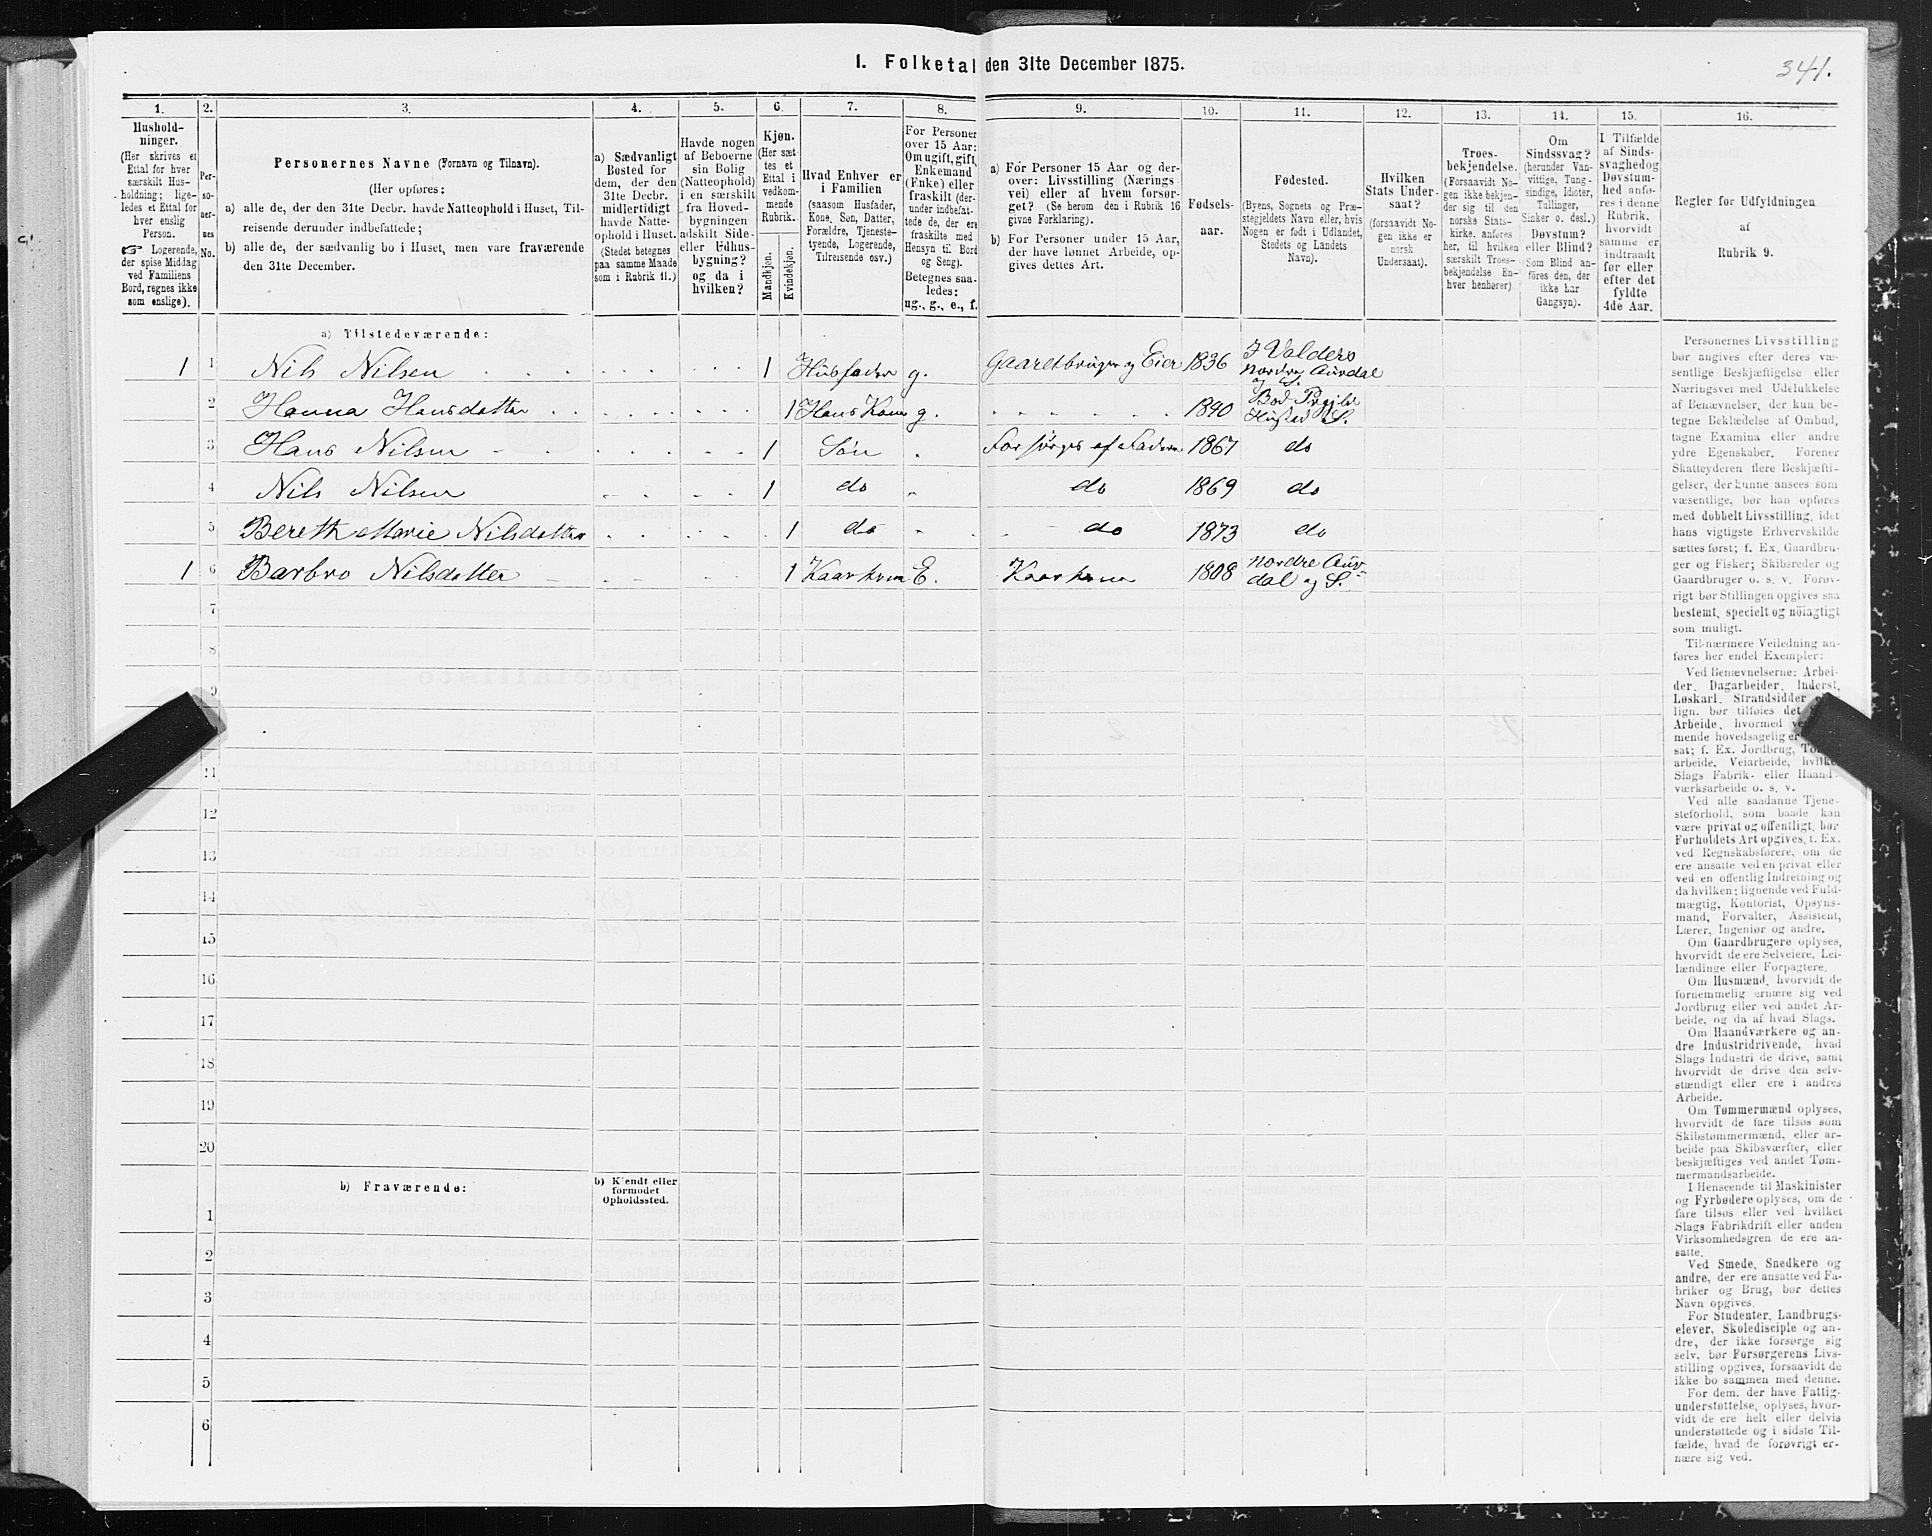 1. Folketal den 31te December 1875.
341.
1. 2. 3. 4. 5. 6. 7. 8. 9. 10. 11. 12. 13. 14. 15. 16.
Hushold-
ninger.
(Her skrives et
Ettal for hver
særskilt Hus-
holdning; lige-
ledes et Ettal for
hver enslig
Person.
☞ Logerende,
der spise Middag
ved Familiens
Bord, regnes ikke
som enslige).
Per-
so-
ner-
nes
No.
Personernes Navne (Fornavn og Tilnavn).
(Her opføres:
a) alle de, der den 31te Decbr. havde Natteophold i Huset, Til-
reisende derunder indbefattede;
b) alle de, der sædvanlig bo i Huset, men vare fraværende
den 31te December.
a) Sædvanligt
Bosted for
dem, der den
31te Decbr.
midlertidigt
havde Natte-
ophold i Huset.
(Stedet betegnes
paa samme Maade
som i Rubrik 11.)
Havde nogen
af Beboerne
sin Bolig
(Natteophold)
i en særskilt
fra Hoved-
bygningen
adskilt Side-
eller Udhus-
bygning?
og da i
hvilken?
Kjøn.
(Her sæt-
tes et
Ettal i
vedkom-
mende
Rubrik.
Mandkjøn.
Kvindekjøn.
Hvad Enhver er
i Familien
(saasom Husfader,
Kone, Søn, Datter,
Forældre, Tjeneste-
tyende, Logerende,
Tilreisende osv.)
For Personer
over 15 Aar:
Om ugift, gift,
Enkemand
(Enke) eller
fraskilt (der-
under indbefat-
tede de, der ere
fraskilte med
Hensyn til Bord
og Seng).
Betegnes saa-
ledes:
ug., g., e., f.
a) For Personer 15 Aar og der-
over: Livsstilling (Nærings
vei) eller af hvem forsør-
get? (Se herom den i Rubrik 16
givne Forklaring).
b) For Personer under 15 Aar,
der have lønnet Arbeide, op-
gives dettes Art.
Fødsels-
aar.
Fødested.
(Byens, Sognets og Præ-
stegjeldets Navn eller, hvis
Nogen er født i Udlandet,
Stedets og Landets
Navn).
Hvilken
Stats Under-
saat?
(forsaavidt No-
gen ikke er
norsk
Undersaat).
Troes-
bekjendelse.
(Forsaavidt No-
gen ikke bekjen-
der sig til den
norske Stats-
kirke, anføres
her, til hvilken
særskilt Troes-
bekjendelse En-
hver henhører)
Om
Sindssvag?
(herunder Van-
vittige, Tung-
sindige, Idioter,
Tullinger,
Sinker o. desl.)
Døvstum?
eller Blind?
(Som Blind an-
føres den, der
ikke har
Gangsyn).
I Tilfælde
af Sinds-
svaghed og
Døvstum-
hed anfø-
res i denne
Rubrik,
hvorvidt
samme er
indtraadt
før eller
efter det
fyldte
4de Aar.
Regler for Udfyldningen
af
Rubrik 9.
a) Tilstedeværende:
1 1 Nils Nilsen 1 Husfader g. Gaardbruger og Eier 1836 I Valders
Nordre Aurdal
og S.
2 Hanna Hansdatter 1 Hans Kone g. 1840 Bod
Hustad S.
3 Hans Nilsen 1 Søn Forsørges af Faderen 1867 do
4 Nils Nilsen 1 do do 1869 do
5 Bereth Marie Nilsdatter 1 do do 1873 do
1 6 Barbro Nilsdatter 1 Kaarkone E. Kaarkone 1808 Nordre Aur-
dal og S.
7
8
9
11
12
13
14
15
16
17
18
19
20
b) Fraværende:
b) Kjendt eller
formodet
Opholdssted.
1
2
3
4
5
6
Personernes Livsstilling
bør angives efter deres væ-
sentlige Beskjæftigelse eller
Næringsvei med Udelukkelse
af Benævnelser, der kun be-
tegne Beklædelse af Ombud,
tagne Examina eller andre
ydre Egenskaber. Forener
Skatteyderen flere Beskjæfti-
gelser, der kunne ansees som
væsentlige, bør han opføres
med dobbelt Livsstilling, idet
hans vigtigste Erhvervskilde
sættes først; f. Ex. Gaardbru-
ger og Fisker; Skibsreder og
Gaardbruger o. s. v. Forøv-
rigt bør Stillingen opgives saa
bestemt, specielt og nøiagtigt
som muligt.
Til nærmere Veiledning an-
føres her endel Exempler:
Ved Benævnelserne: Arbei-
der, Dagarbeider, Inderst,
Løskarl, Strandsidder
lign. bør tilføies det
Arbeide, hvormed
mende hovedsagelig er
sat; f. Ex. Jordbrug,
arbeide, Veiarbeide, hvilket
Slags Fabrik- eller Haand-
værksarbeide o. s. v.
Ved alle saadanne Tjene-
steforhold, som baade kan
være privat og offentligt, bør
Forholdets Art opgives, t. Ex.
ved Regnskabsførere, om de
ere ansatte ved en privat eller
ved en offentlig Indretning og
da hvilken; lignende ved Fuld-
mægtig, Kontorist, Opsyns-
mand, Forvalter, Assistent,
Lærer, Ingeniør og andre.
Om Gaardbrugere oplyses,
hvorvidt de ere Selveiere, Lei-
lændinge eller Forpagtere.
Om Husmænd, hvorvidt de
fornemmelig ernære sig ved
Jordbrug eller ved andet Ar-
beide, og da af hvad Slags.
Om Haandværkere og an-
dre Industridrivende, hvad
Slags Industri de drive, samt
hvorvidt de drive den selv-
stændigt eller ere i andres
Arbeide.
Om Tømmermænd oplyses,
hvorvidt de fare tilsøs som
Skibstømmermænd, eller ar-
beide paa Skibsværfter, eller
beskjæftiges ved andet Tøm-
mermandsarbeide.
I Henseende til Maskinister
og Fyrbødere oplyses, om de
fare tilsøs eller ved hvilket
Slags Fabrikdrift eller anden
Virksomhedsgren de ere an-
satte.
Ved Smede, Snedkere og
andre, der ere ansatte ved Fa-
briker og Brug, bør dettes
Navn opgives.
For Studenter, Landbrugs-
elever, Skoledisciple og an-
dre, der ikke forsørge sig
selv, bør Forsørgerens Livs-
stilling opgives, forsaavidt de
ikke bo sammen med denne.
For dem, der have Fattig-
understøttelse, oplyses, hvor-
vidt de ere helt eller delvis
understøttede og i sidste Til-
fælde, hvad de forøvrigt er-
nære sig ved.